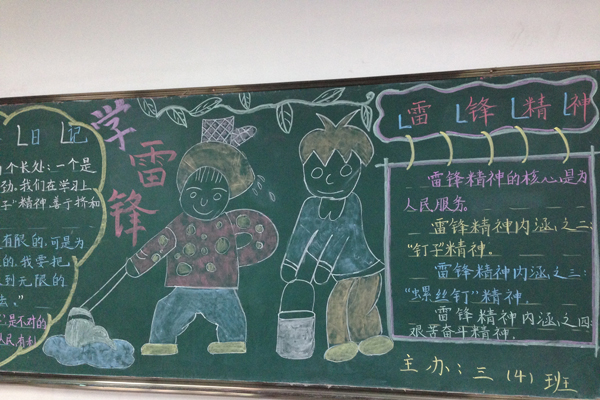 日记
个长处：一个是
劲。我们在学习上
子"精神善于挤和
有限的，可是为
的，我要把
到无限的
去。"
是不对的
学雷锋
雷锋精神
雷锋精神的核心是为
人民服务。
雷锋精神内涵之二：
"钉子"精神。
雷锋精神内涵之三：
"螺丝钉"精神。
雷锋精神内涵之四：
艰苦奋斗精神。
主办：三（4）班